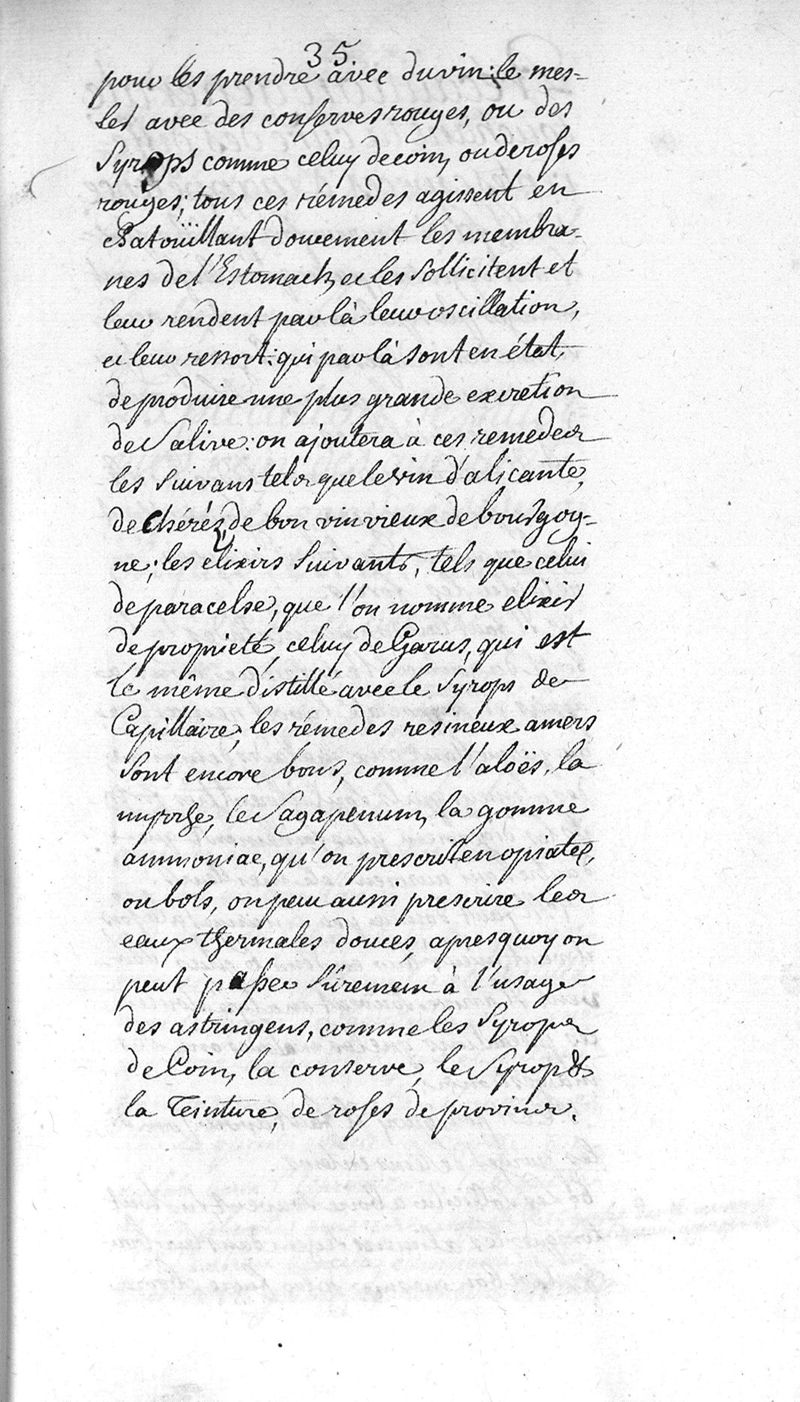 35.
pour les prendre avec du vin: le mes-
ler avec des conserves rouges, ou des
Syrops comme celuy de coin, ou de roses
rouges; tous ces rémedes agissent en
chatoüillant doucement les membra-
nes de l'Estomach, et les sollicitent et
leur rendent par là leur oscillation,
et leur ressort: qui par là sont en état,
de produire une plus grande excretion
de Salive: on ajoutera à ces remedes
les suivans tels que le vin d'alicante,
de chérés, de bon vin vieux de bourgoy-
ne; les elixirs suivants, tels que celui
de paracelse, que l'on nomme elixir
de proprieté, celuy de Garus, qui est
le même distillé avec le Syrops de
Capillaire, les rémedes resineux amers
sont encore bons, comme l'aloës, la
myrrhe, le Sagapenum, la gomme
ammoniac, qu'on prescrit en opiates,
ou bols, on peu aussi prescrire les
eaux thermales douces, apres quoy on
peut passer sûrement à l'usage
des astringens, comme les Syrops
de Coin, la conserve, le Syrop &
la Teinture, de roses de provins.